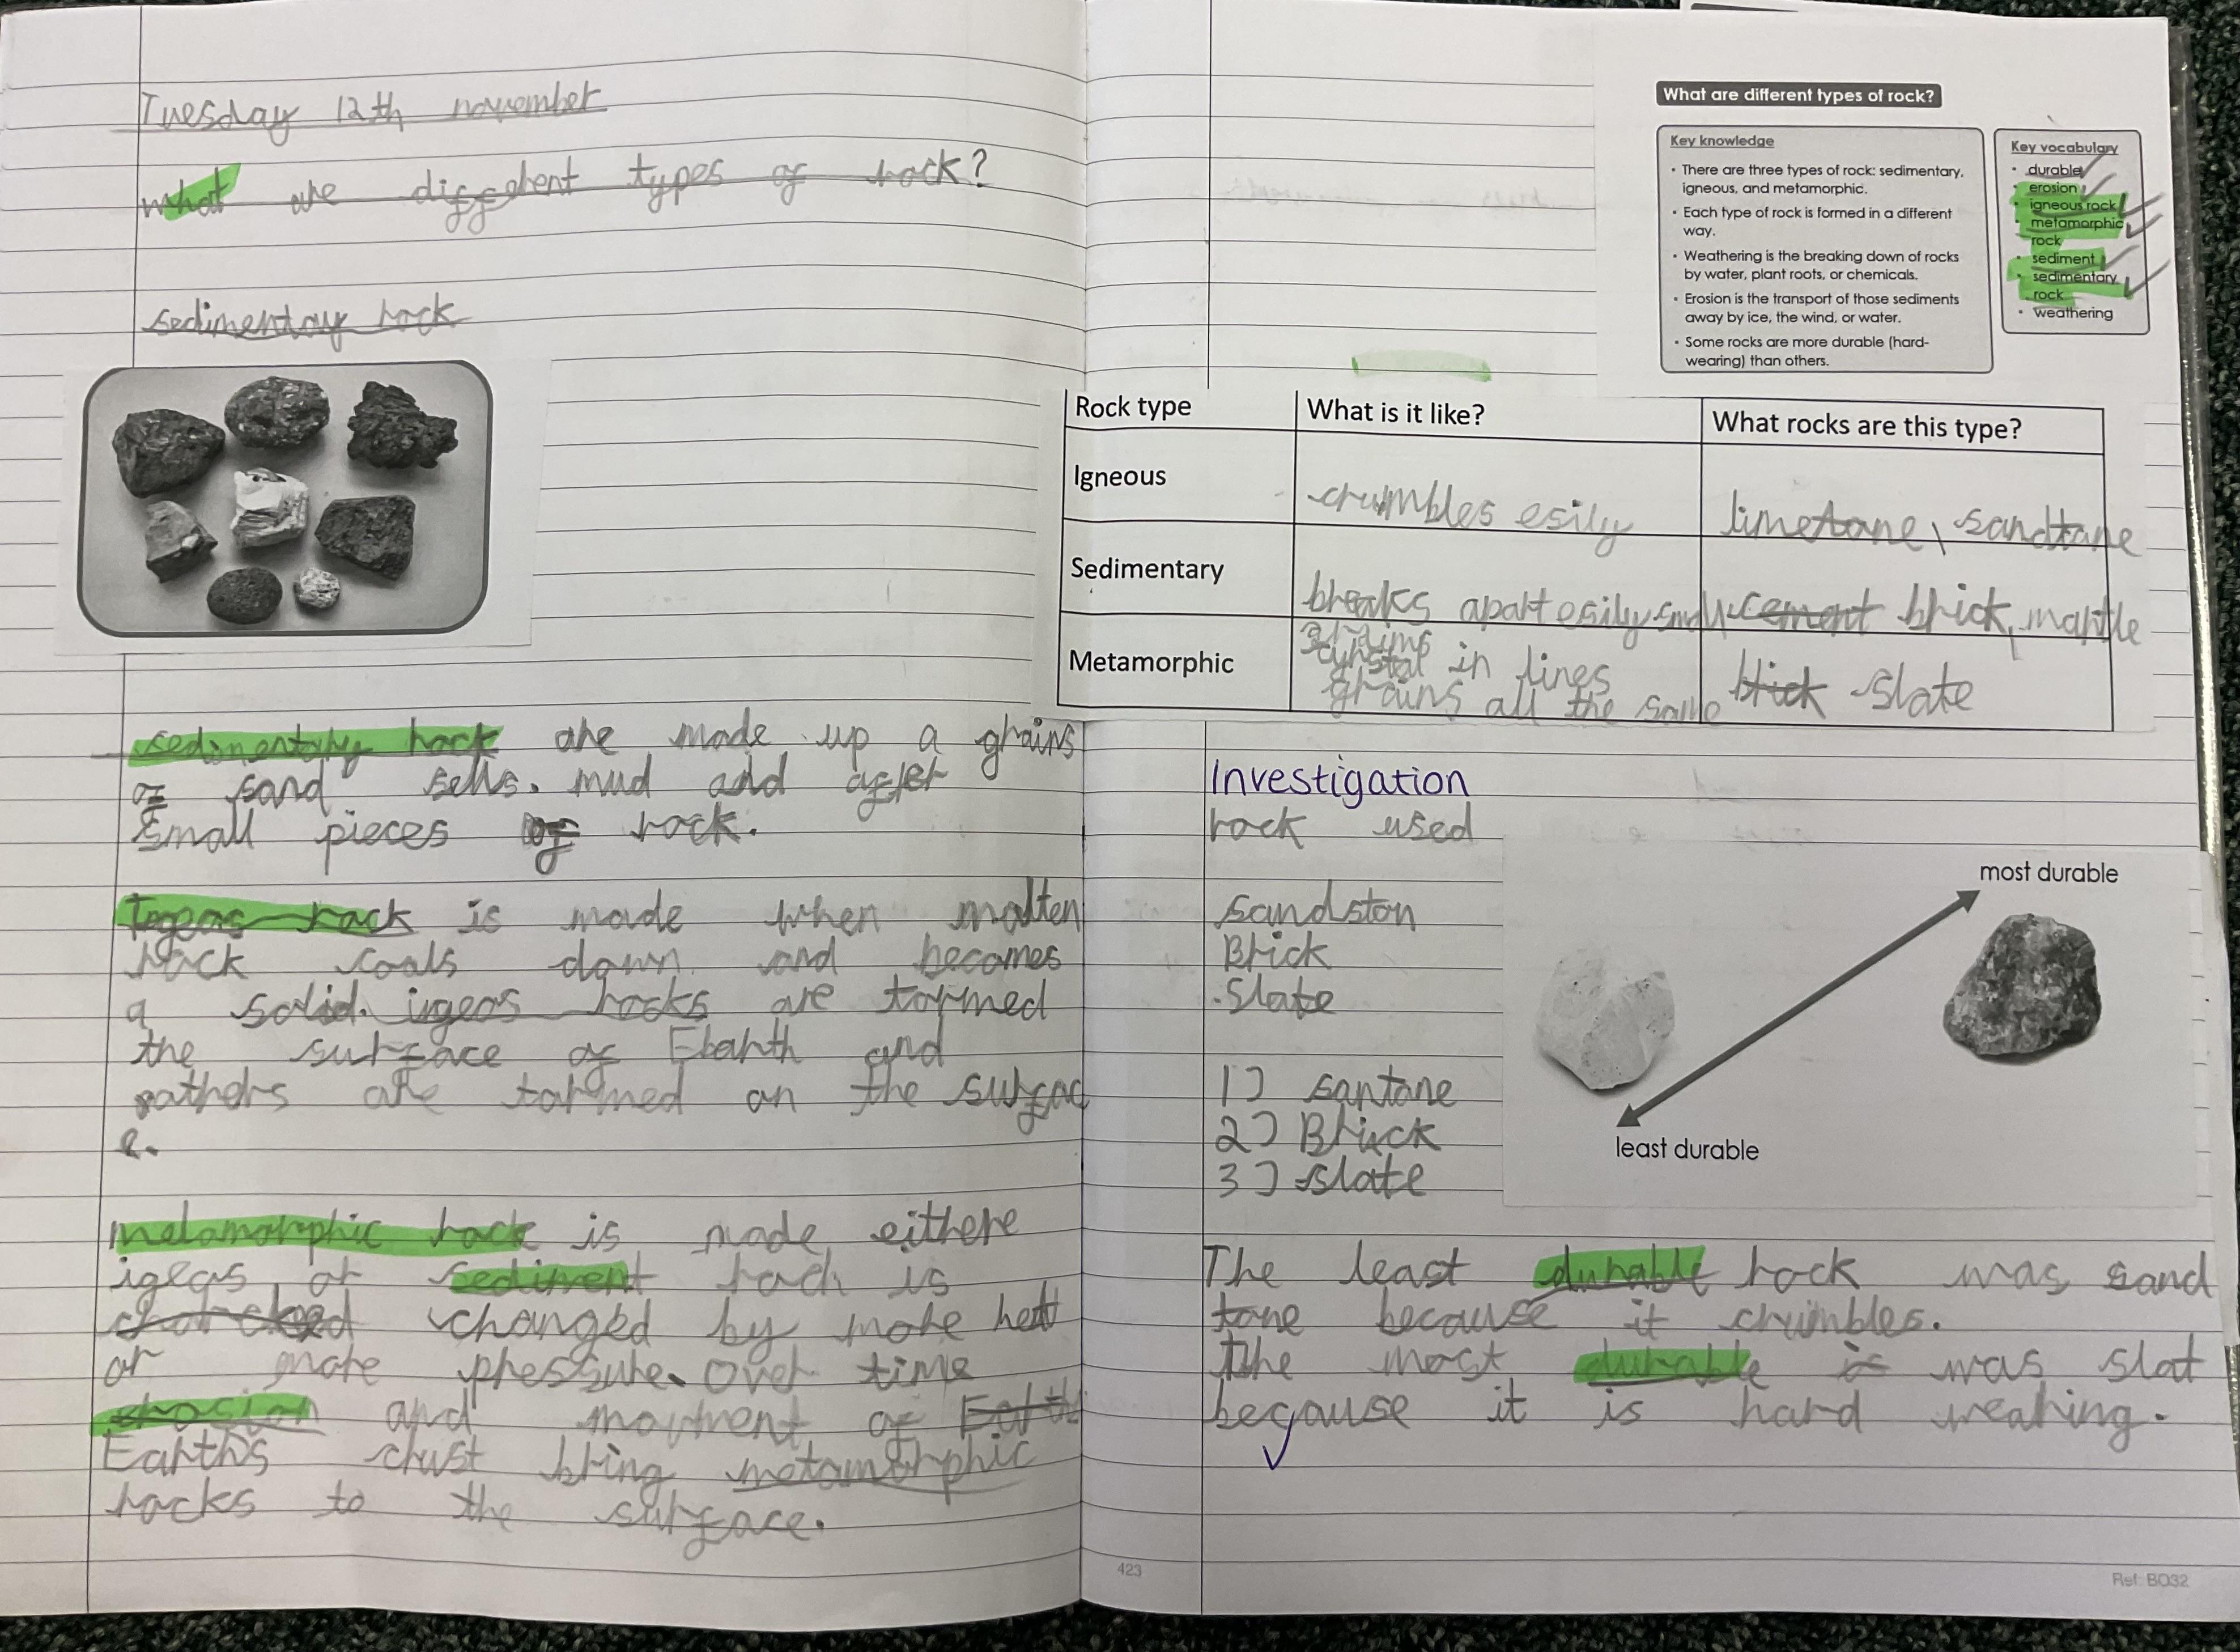 Tuesday 12th november
What are diffefent types of rock?
sedimentay rock
sedimentary rock are made up a grains
of sand sells. mud and after
small pieces of rock.
Igeas rock is made when molten
rock cools down and becomes
a solid. igeas rocks are tormed
the surface of Ebarth and
oathers are tormed on the surfac
e.
metamorphic rock is made eithere
igeas or sediment roch is
changed by more heat
or more pressure. Over time
erosion and movment of Earth
Earth's crust bring metamorphic
rocks to the surface.
What are different types of rock?
Key knowledge
• There are three types of rock: sedimentary,
igneous, and metamorphic.
• Each type of rock is formed in a different
way.
• Weathering is the breaking down of rocks
by water, plant roots, or chemicals.
• Erosion is the transport of those sediments
away by ice, the wind, or water.
• Some rocks are more durable (hard-
wearing) than others.
Key vocabulary
• durable
• erosion
• igneous rock
• metamorphic
rock
• sediment
• sedimentary
rock
• weathering
Rock type What is it like? What rocks are this type?
Igneous crumbles esily limetone, sandtane
Sedimentary breaks apart esily cement brick, marble
grains
Metamorphic crystal in lines brick slate
grains all the same
Investigation
rock used
sandston
Brick
slate
1) santane
2) Brick
3) slate
most durable
least durable
The least durable rock was sand
tone because it crumbles.
The most durable is was slat
because it is hard wearing.
423
Ref: BO32